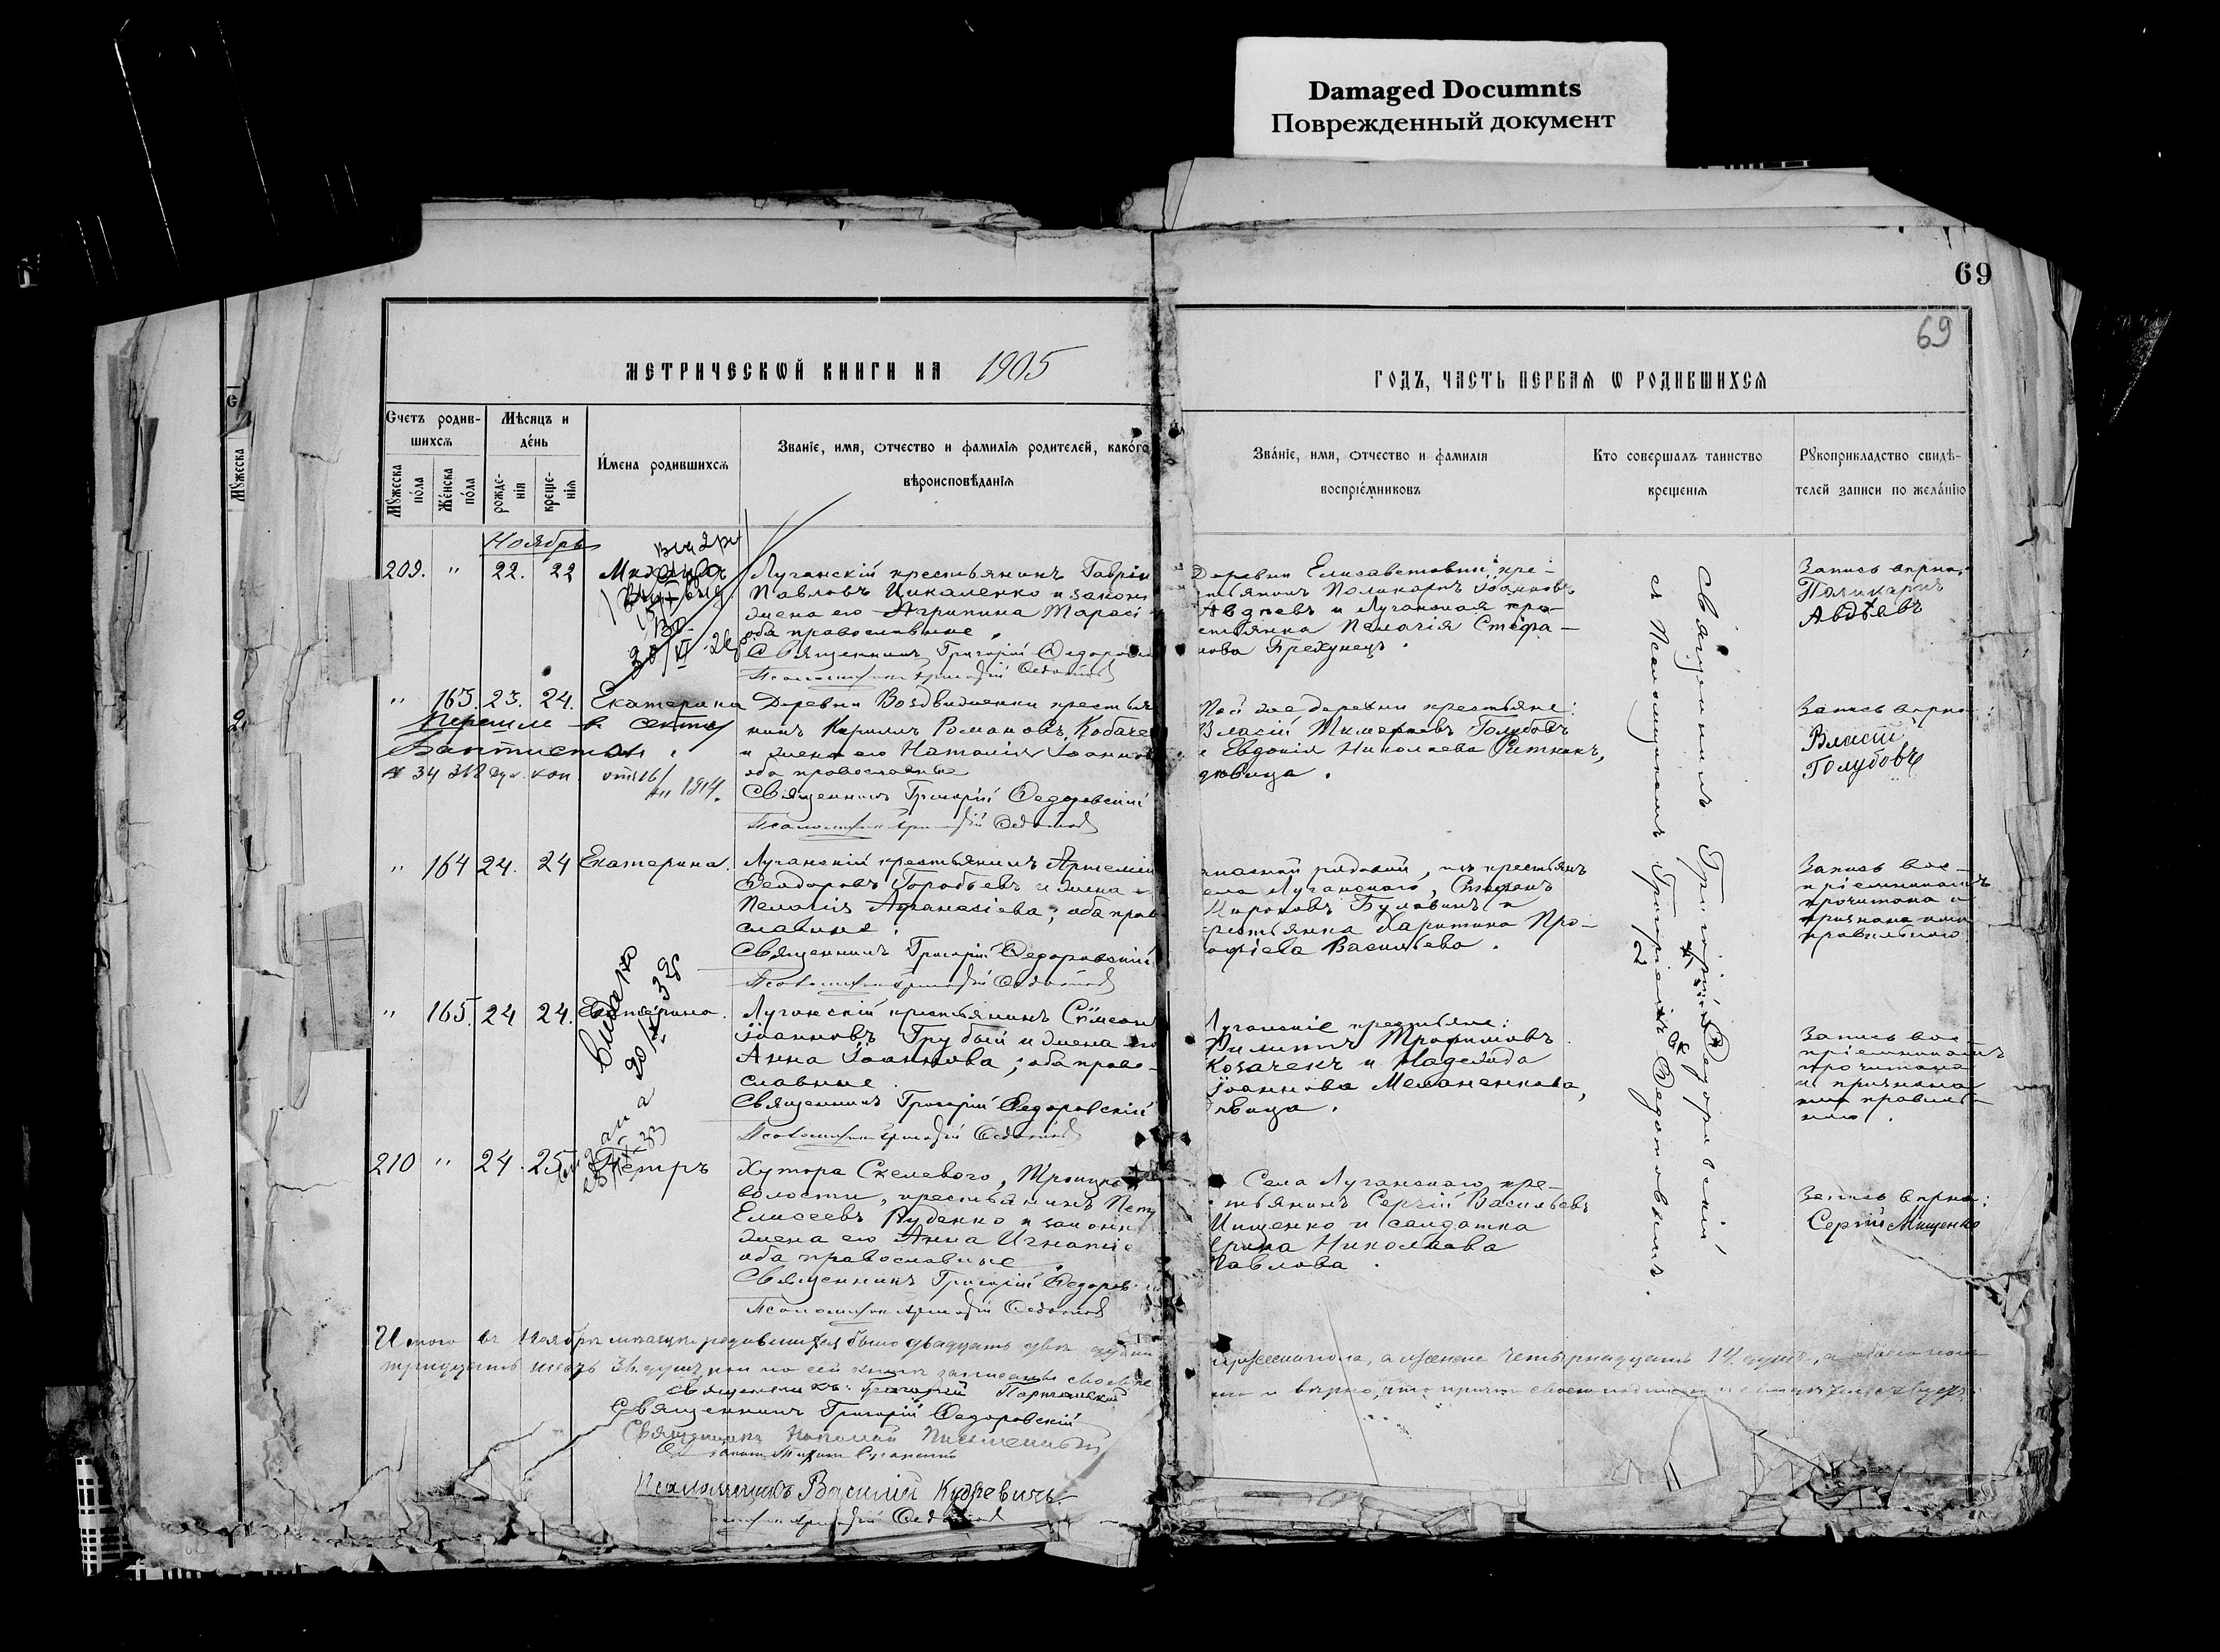 Damaged Documnts
Поврежденный документ
69
69
МЕТРИЧЕСКОЙ КНИГИ НА 1905
ГОДЪ, ЧАСТЬ ПЕРВАЯ Ѡ РОДИВШИХСЯ
Счетъ родив-
шихся
Мѣсяцъ и
день
Мужеска
пола
Женска
пола
рожде-
нія
креще-
нія
Имена родившихся
Званіе, имя, отчество и фамилія родителей, какого
вѣроисповѣданія
Званіе, имя, отчество и фамилія
воспріемниковъ
Кто совершалъ таинство
крещенія
Рукоприкладство свидѣ-
телей записи по желанію
Мужеска
Ноябрь
209. " 22. 22
Луганскій крестьянинъ Гавріи
Павловъ Цикаленко и закон
жена его Агрипина Тарасі
оба православные.
Священникъ Григорій Федоров
Псаломщикъ Григорій Федотов
Деревни Елисаветовки кре-
стьянинъ Поликарпъ Іоанновъ
Авдѣевъ и Луганская кре-
стьянка Пелагія Стефа-
нова Брехунецъ.
Запись вѣрна:
Поликарпъ
Авдѣевъ
" 163. 23. 24. Екатерина
Перешла в секту
Баптистов.
№ 34 318 Дух. кон. отъ 16/ 1914.
Деревни Воздвиженки крестья
нинъ Кириллъ Романовъ Кобаче
и жена его Наталія Іоаннов
оба православные
Священникъ Григорій Федоровскій
Псаломщикъ Григорій Федотов
Той же деревни крестьяне:
Власій Тимофеевъ Голубовъ
и Евдокія Николаева
дѣвица.
Запись вѣрна:
Власій
Голубовъ
" 164 24. 24 Екатерина.
Луганскій крестьянинъ Артемій
Феодоровъ Горобьевъ и жена
Пелагія Афанасіева; оба прав
славные.
Священникъ Григорій Федоровскій
Псаломщикъ Григорій Федотов
рядовой, изъ крестьянъ
села Луганскаго, Стефанъ
Мироновъ Булавинъ и
крестьянка Харитина Про-
кофіева Васильева.
Запись вос-
пріемникамъ
прочитана и
признана ими
правильною
" 165. 24 24. Екатерина.
Выдано
Луганскій крестьянинъ Сѵмеон
Іоанновъ Грубый и жена его
Анна Іоаннова; оба право-
славные.
Священникъ Григорій Федоровскій
Псаломщикъ Григорій Федотов
Луганскіе крестьяне:
Филиппъ Трофимовъ
Козачекъ и Надежда
Іоаннова Меланенкова,
дѣвица.
Запись вос-
пріемникамъ
прочитана
и признана
ими правиль-
ною.
210 " 24. 25. Петръ
Хутора Скелевого, Троицкой
волости, крестьянинъ Петр
Елисеевъ Руденко и законн
жена его Анна Игнатіе
оба православные.
Священникъ Григорій Федоров
Псаломщикъ Григорій Федотов
Села Луганскаго кре-
стьянинъ Сергій Васильевъ
Мищенко и солдатка
Ирина Николаева
Павлова.
Запись вѣрна:
Сергій Мищенко
Священникъ Григорій Федоровскій
съ Псаломщикомъ Григоріемъ Федотовымъ.
Итого въ Ноябрѣ мѣсяцѣ родившихся было двадцать двѣ души
мужескаго пола, а женска четырнадцать 14 душъ, а обоего пола
тридцать шесть 36 душъ, кои по сей книгѣ записаны своевре
но и вѣрно, что причтъ своею подписью и свидѣтельствуетъ.
Священникъ: Григорій
Священникъ Григорій Федоровскій
Священникъ Николай
Псаломщикъ Василій Кудревичъ.
Григорій Федотов